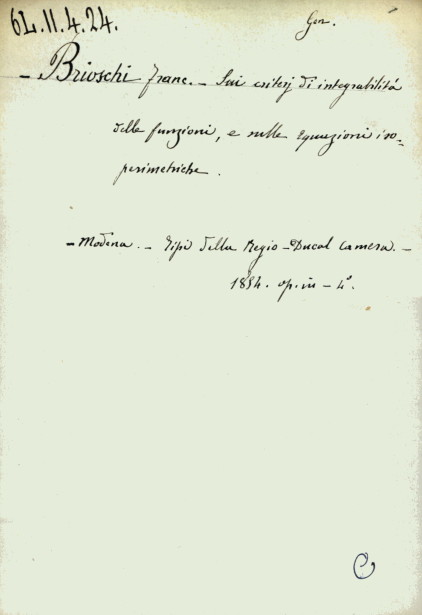 6L.11.4.24.
Gen.
- Brioschi Franc. - Sui criterj di integrabilitá
delle funzioni, e sulle Equazioni iso-
perimetriche.
- Modena. - Tipi della Regio-Ducal Camera. -
1854. op. in - 4°.
C